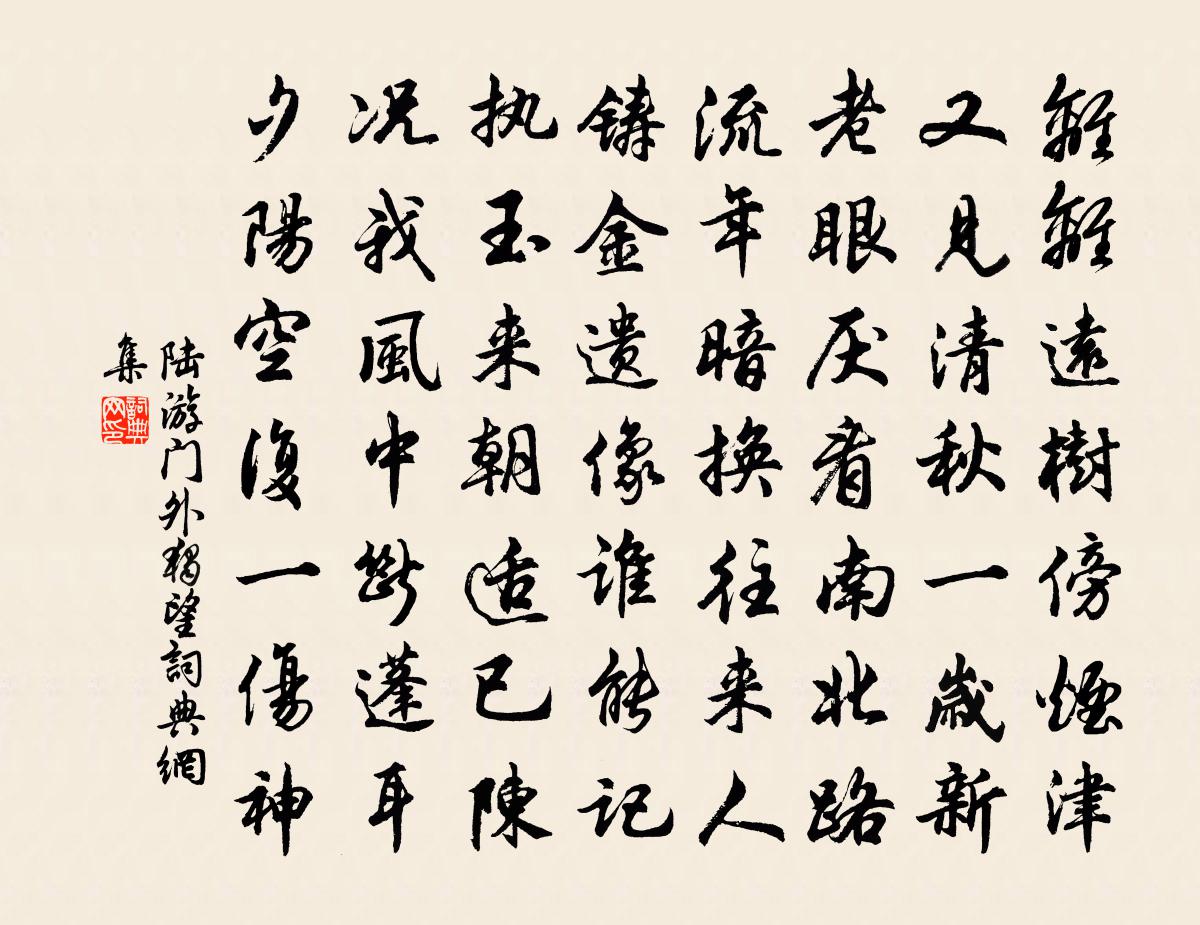 離離遠樹傍煙津
又見清秋一歲新
老眼厌看南北路
流年暗换往来人
铸金遗像谁能记
执玉来朝适已陳
况我風中斷蓬耳
夕陽空復一傷神
陆游门外獨望詞典網
集
詞典网印